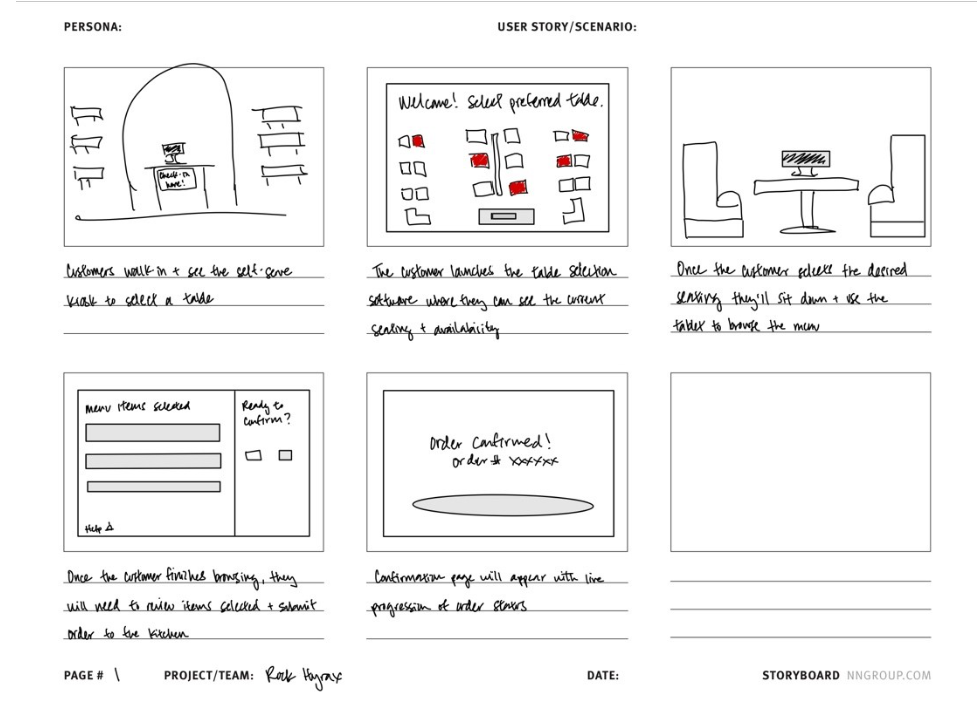 PERSONA:
USER STORY/SCENARIO:
Check-in
here!
Customers walk in + see the self-serve
kiosk to select a table
Welcome! Select preferred table.
The customer launches the table selection
software where they can see the current
seating + availability
Once the customer selects the desired
seating they'll sit down + use the
tablet to browse the menu
Menu items selected
Ready to
confirm?
Help
Once the customer finishes browsing, they
will need to review items selected + submit
order to the kitchen
Order Confirmed!
Order # xxxxxx
Confirmation page will appear with live
progression of order status
PAGE # 1
PROJECT/TEAM: Rock Hyrax
DATE:
STORYBOARD NNGROUP.COM